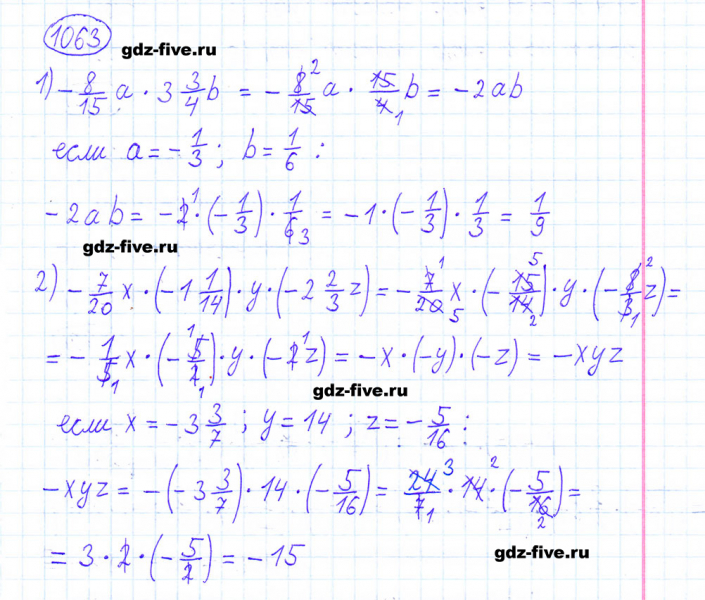 1063 gdz-five.ru
1) - 8/15 a · 3 3/4 b = - 8²/15 a · 15/4₁ b = -2ab
если a = - 1/3 ; b = 1/6 :
-2ab = -2¹ · (- 1/3) · 1/6₃ = -1 · (- 1/3) · 1/3 = 1/9
gdz-five.ru
2) - 7/20 x · (-1 1/14) · y · (-2 2/3 z) = - 7¹/20₅ x · (- 15⁵/14₂) · y · (- 8²/3₁ z) =
= - 1/5₁ x · (- 5¹/2₁) · y · (-2¹z) = -x · (-y) · (-z) = -xyz
gdz-five.ru
если x = -3 3/7 ; y = 14 ; z = - 5/16 :
-xyz = -(-3 3/7) · 14 · (- 5/16) = 24³/7₁ · 14² · (- 5/16₂) =
= 3 · 2 · (- 5/2) = -15
gdz-five.ru